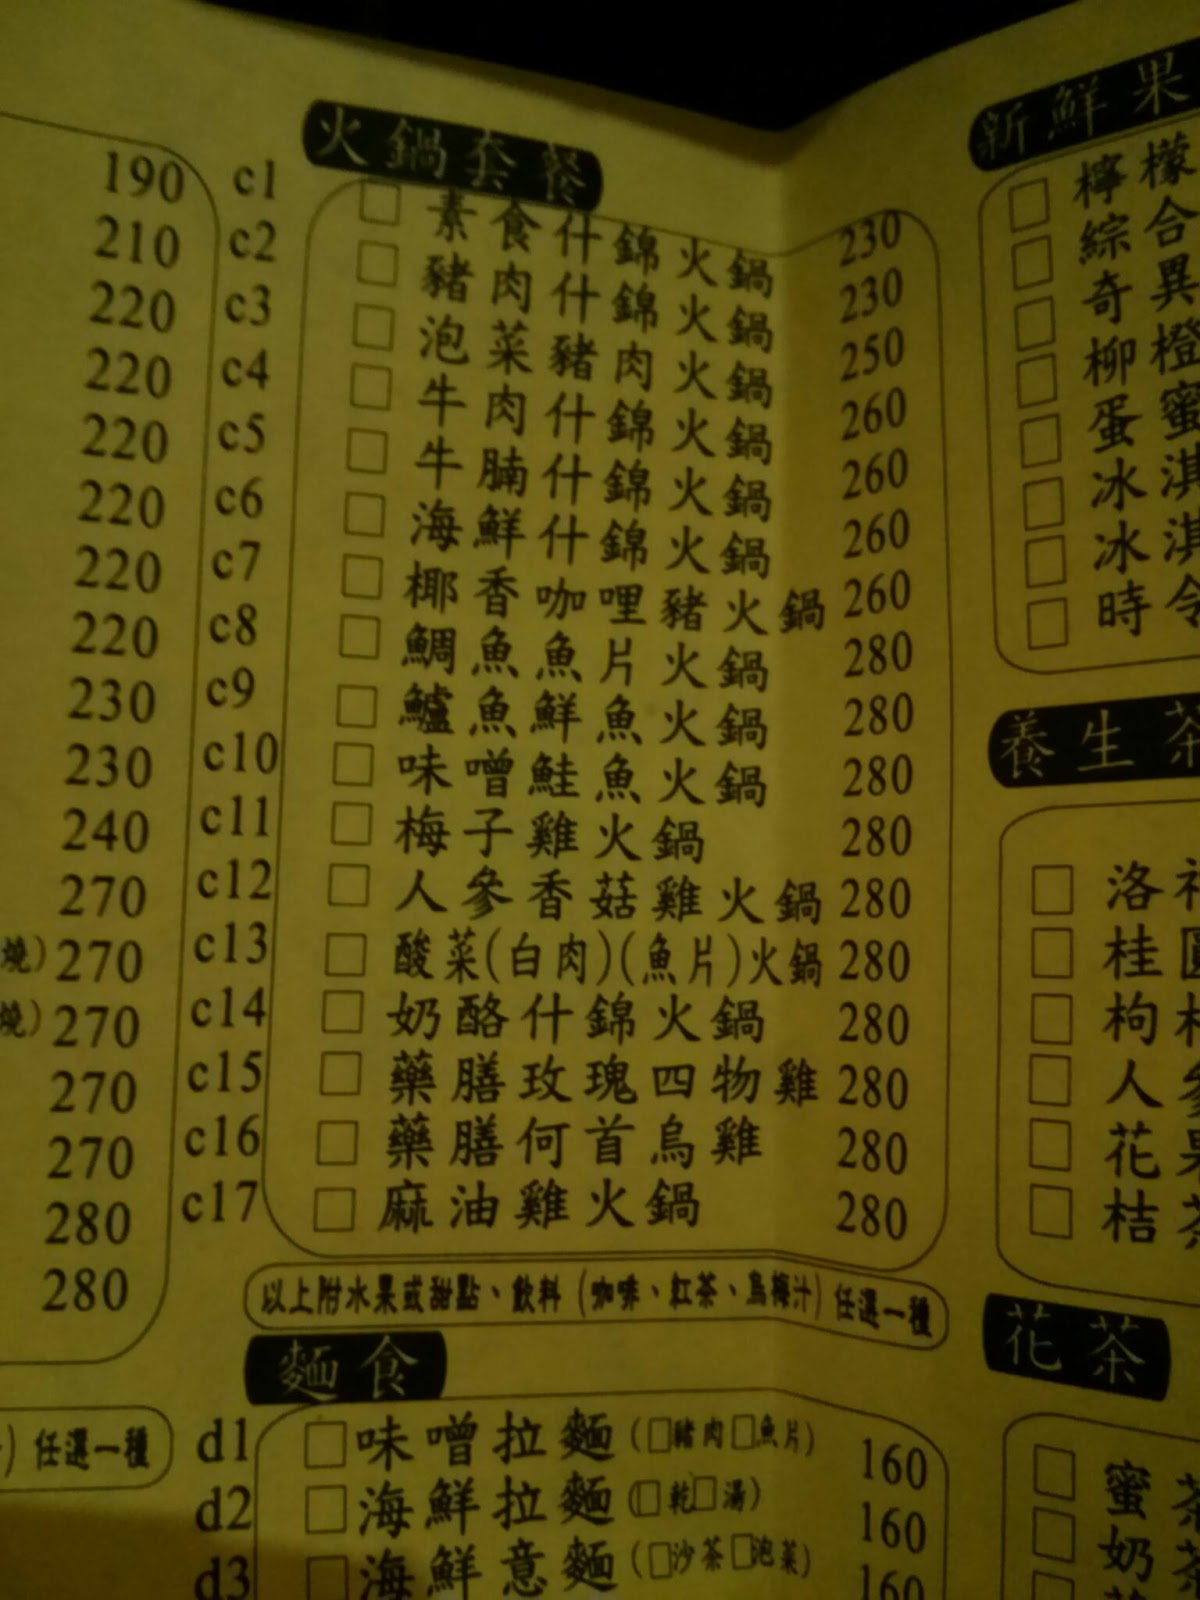 190
210
220
220
220
220
220
220
230
230
240
270
燒) 270
燒) 270
270
270
280
280
) 任選一種
火鍋套餐
c1 □ 素食什錦火鍋 230
c2 □ 豬肉什錦火鍋 230
c3 □ 泡菜豬肉火鍋 250
c4 □ 牛肉什錦火鍋 260
c5 □ 牛腩什錦火鍋 260
c6 □ 海鮮什錦火鍋 260
c7 □ 椰香咖哩豬火鍋 260
c8 □ 鯛魚魚片火鍋 280
c9 □ 鱸魚鮮魚火鍋 280
c10 □ 味噌鮭魚火鍋 280
c11 □ 梅子雞火鍋 280
c12 □ 人參香菇雞火鍋 280
c13 □ 酸菜(白肉)(魚片)火鍋 280
c14 □ 奶酪什錦火鍋 280
c15 □ 藥膳玫瑰四物雞 280
c16 □ 藥膳何首烏雞 280
c17 □ 麻油雞火鍋 280
以上附水果或甜點、飲料 (咖啡、紅茶、烏梅汁) 任選一種
麵食
d1 □ 味噌拉麵 (□豬肉□魚片) 160
d2 □ 海鮮拉麵 (□乾□湯) 160
d3 □ 海鮮意麵 (□沙茶□泡菜) 160
新鮮果
□ 檸檬
□ 綜合
□ 奇異
□ 柳橙
□ 蛋蜜
□ 冰淇
□ 冰淇
□ 時令
養生茶
□ 洛
□ 桂圓
□ 枸
□ 人參
□ 花果
□ 桔茶
花茶
□ 蜜
□ 奶茶